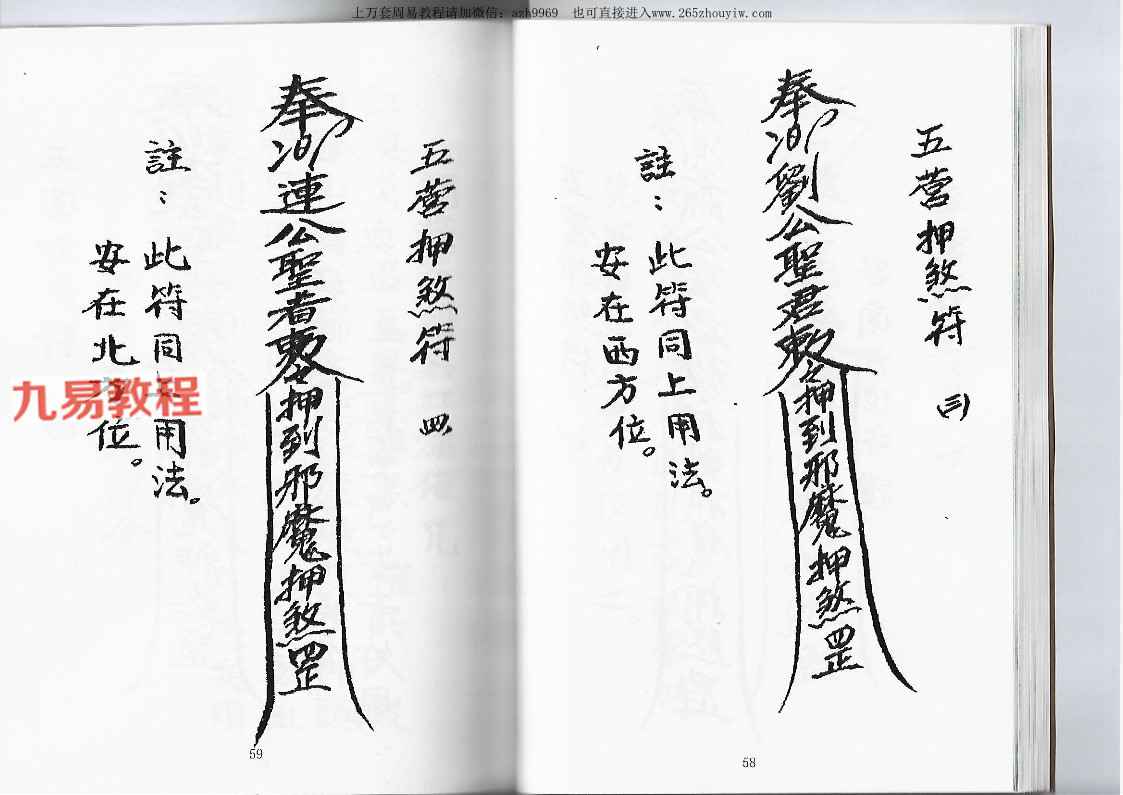 上万套周易教程请加微信：azh9969　也可直接进入www.265zhouyiw.com
五营押煞符　㈢
劉公聖君敕令押到邪魔押煞罡
註：此符同上用法。
安在西方位。
58
五营押煞符　四
連公聖者敕令押到邪魔押煞罡
註：此符同上用法。
安在北方位。
九易教程
59